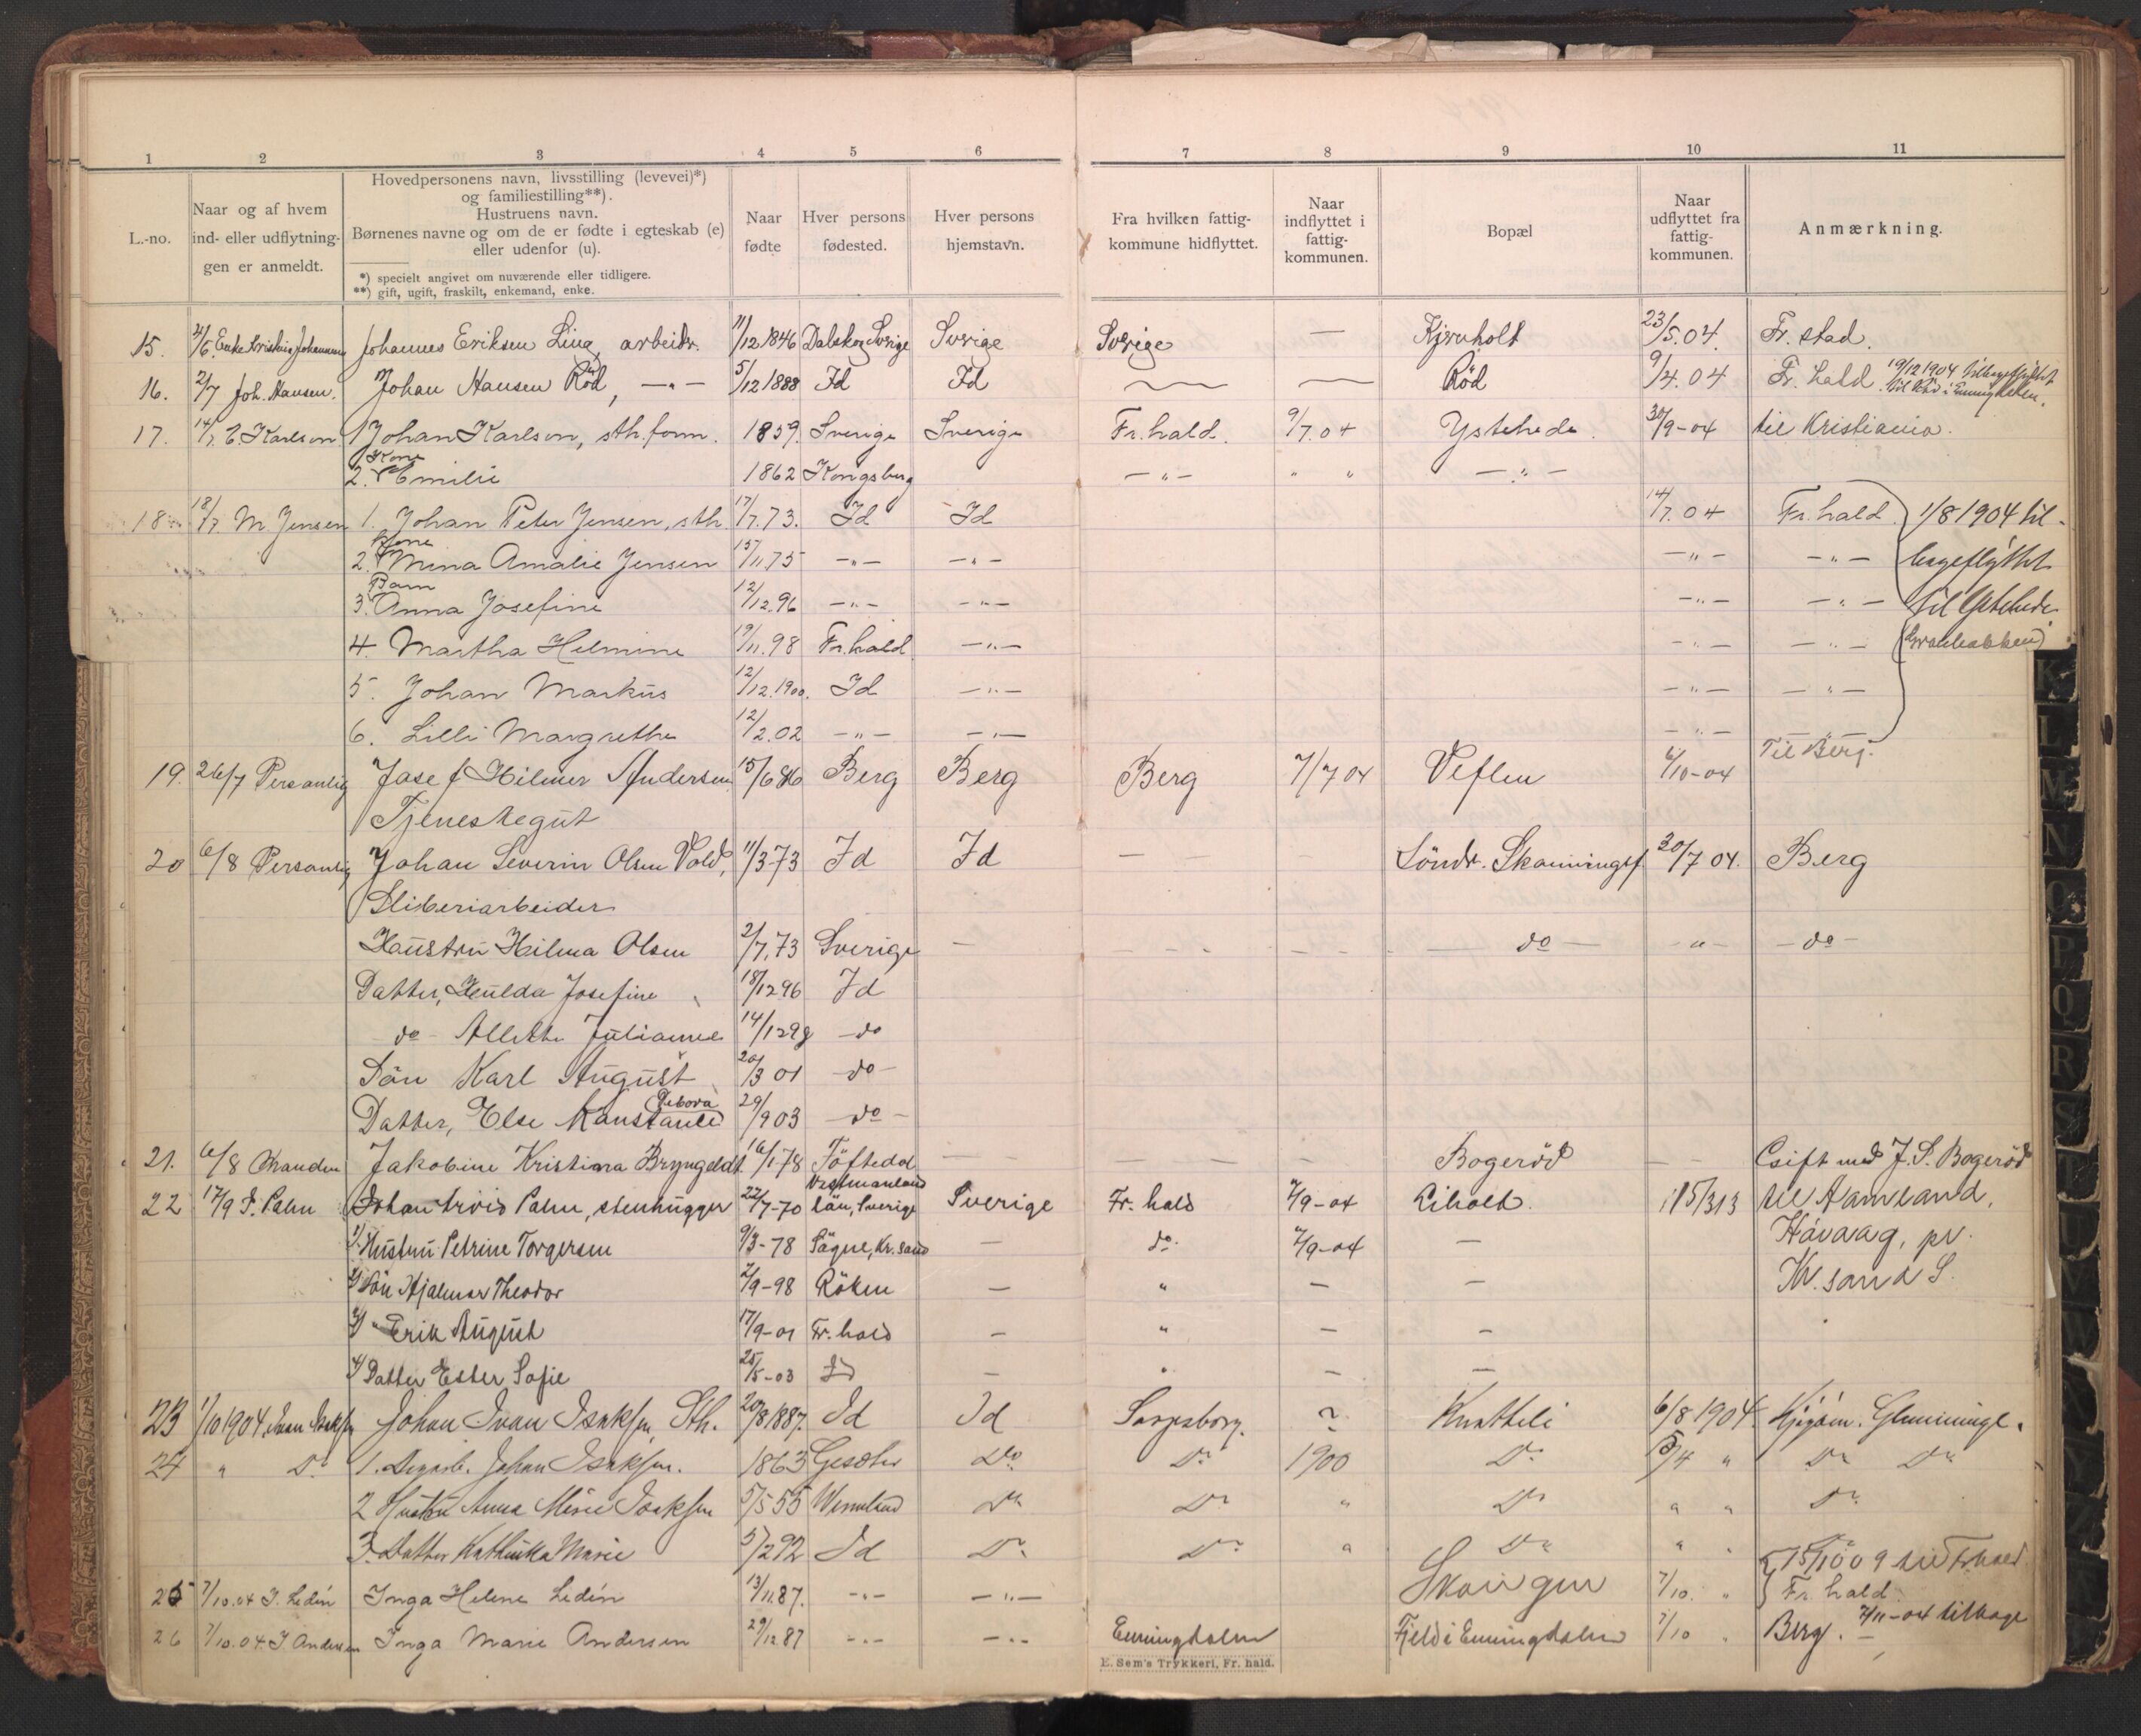 1 2 3 4 5 6 7 8 9 10 11
L.-no.
Naar og af hvem
ind- eller udflytnin-
gen er anmeldt.
Hovedpersonens navn, livsstilling (levevei)*)
og familiestilling**).
Hustruens navn.
Børnenes navne og om de er fødte i egteskab (e)
eller udenfor (u).
*) specielt angivet om nuværende eller tidligere.
**) gift, ugift, fraskilt, enkemand, enke.
Naar
fødte
Hver persons
fødested.
Hver persons
hjemstavn.
Fra hvilken fattig-
kommune hidflyttet.
Naar
indflyttet i
fattig-
kommunen.
Bopæl
Naar
udflyttet fra
fattig-
kommunen.
Anmærkning.
15. Enke Kristine Johannsen Johannes Eriksen Lie, arbeidr. 11/12 1846 Dalskog Sverige Sverige Sverige — Kjernholt 23/5.04. Fr. stad.
16. 2/7 Joh. Hansen. Johan Hansen Röd, —„— 5/12 1888 Id Id Röd 9/4.04 Fr. hald 19/12 1904 tilbageflyttet
til Röd i Enningdalen.
17. 14/7 E. Karlson 1 Johan Karlson, sth.form. 1859. Sverige Sverige Fr.hald. 9/7.04 Ystehede. 30/9-04 til Kristiania.
Kone
2. Emilie 1862 Kongsberg —„— „ „ —„—
18. 18/7. M Jensen 1. Johan Peter Jensen, sth. 17/7.73. Id Id 14/7.04 Fr.hald. 1/8 1904 til-
Kone
2. Mina Amalie Jensen 15/11.75 —„— —„— —„— —„— bageflyttet
Barn
3. Anna Josefine 12/12.96 —„— —„— —„— —„— til Ystehede
4. Martha Helmine 19/11.98 Fr.hald. —„— —„— —„— (Granbakken)
5. Johan Markus 12/12.1900. Id —„— —„— —„—
6. Lilli Margrethe 12/2.02 —„— —„— —„— —„—
19. 26/7 Personlig Josef Hilmer Andersen 15/6 86 Berg Berg Berg 7/7 04 Veflen 6/10-04 Til Berg.
Tjenestegut
20 6/8 Personlig Johan Severin Olsen Vold, 11/3 73 Id Id — — Söndr. Skanningsf. 30/7 04. Berg
Sliberiarbeider
Haustru Hilma Olsen 2/7.73 Sverige — — do — — „ — — do —
Datter, Hulda Josefine 18/12 96 Id
do Allette Julianne 14/12 98 do
Sön Karl August 20/3 01 do
Debora
Datter, Else Konstance 29/9 03 do
21. 6/8 Jakobine Kristiana Bryngeldt 16/1 78 Töftedal — — — Bogeröd — — Gift med J. S. Bogeröd
22 17/9 J. Palm Johan Arvid Palm, stenhugger 22/7-70 Vestmanland län, Sverige Sverige Fr. hald 7/9-04 Liholt. 15/3 13 til Aamland,
1) Hustru Petrine Torgersen 9/3-78 Sögne, Kr.sand — do. 7/9-04 — Hövaag, pr.
2) Sön Hjalmar Theodor 2/9-98 Röken — „ — — Kr.sand S.
3) „ Erik August 17/9-01 Fr. hald — „ — —
4) Datter Ester Sofie 25/5-03 Id — „ — —
23 1/10 1904 Ivan Isaksen Johan Ivan Isaksen, Sth. 20/8 1887. Id Id Sarpsborg. ~ Knatteli 6/8 1904. Glemminge.
24 „ Do 1. Johan Isaksen. 1863 Do Do 1900 Do 5/4 „ Do Do
2 Hustru Anna Marie Isaksen 5/5 55 Wermland Do Do „ Do „ „ Do
3. Datter Kathinka Marie 5/2 92 Id Do Do „ Do „ „ 15/10 09 til Fr.hald
25 7/10.04 I. Ledin Inga Helene Ledin 13/11.87. —„— —„— 7/10 „ Fr. hald
26 7/10.04 I. Andersen Inga Marie Andersen 29/12.87 —„— —„— Enningdalen Fjeld i Enningdalen 7/10 „ Berg. 7/11-04 tilbage
E. Sem's Trykkeri, Fr. hald.
K
L
M
N
O
P
Q
R
S
T
U
V
W
Y
Z